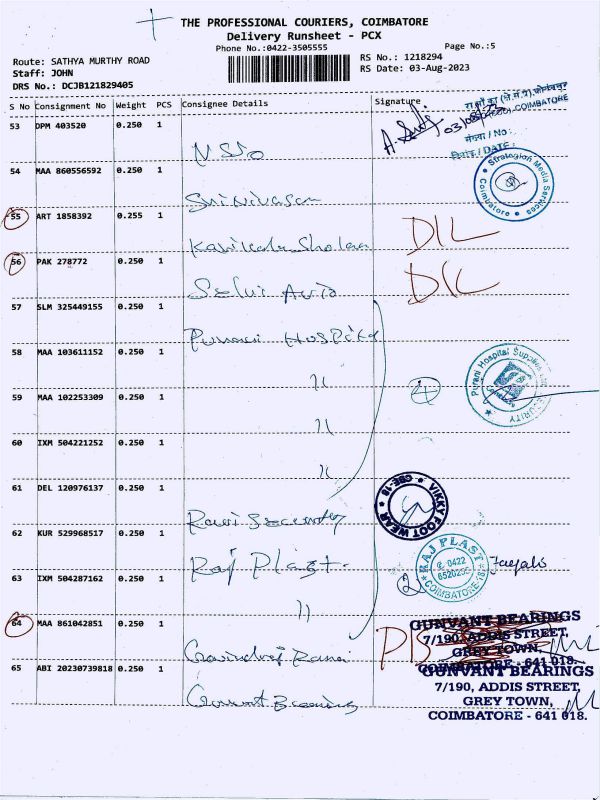 THE PROFESSIONAL COURIERS, COIMBATORE
Delivery Runsheet - PCX
Phone No.:0422-3505555
Page No.:5
Route: SATHYA MURTHY ROAD
RS No.: 1218294
Staff: JOHN
RS Date: 03-Aug-2023
DRS No.: DCJB121829405
S No Consignment No Weight PCS Consignee Details Signature
COIMBATORE
53 DPM 403520 0.250 1
03/08/23
संख्या / No :
दिनांक / DATE :
54 MAA 860556592 0.250 1
Strategian Media Services
Coimbatore
Srinivasan
55 ART 1858392 0.255 1
DIL
56 PAK 278772 0.250 1
Selvi
DIL
57 SLM 325449155 0.250 1
Purani Hospital
58 MAA 103611152 0.250 1
Purani Hospital Supplies
SECURITY
"
4
59 MAA 102253309 0.250 1
"
60 IXM 504221252 0.250 1
"
61 DEL 120976137 0.250 1
VIKKY FOOT WEAR
CBE-18
62 KUR 529968517 0.250 1
Raj Plast
RAJ PLAST
0422
COIMBATORE-18
2
63 IXM 504287162 0.250 1
"
64 MAA 861042851 0.250 1
GUNVANT BEARINGS
7/190, ADDIS STREET,
GREY TOWN,
COIMBATORE - 641 018.
65 ABI 20230739818 0.250 1
GUNVANT BEARINGS
7/190, ADDIS STREET,
GREY TOWN,
COIMBATORE - 641 018.